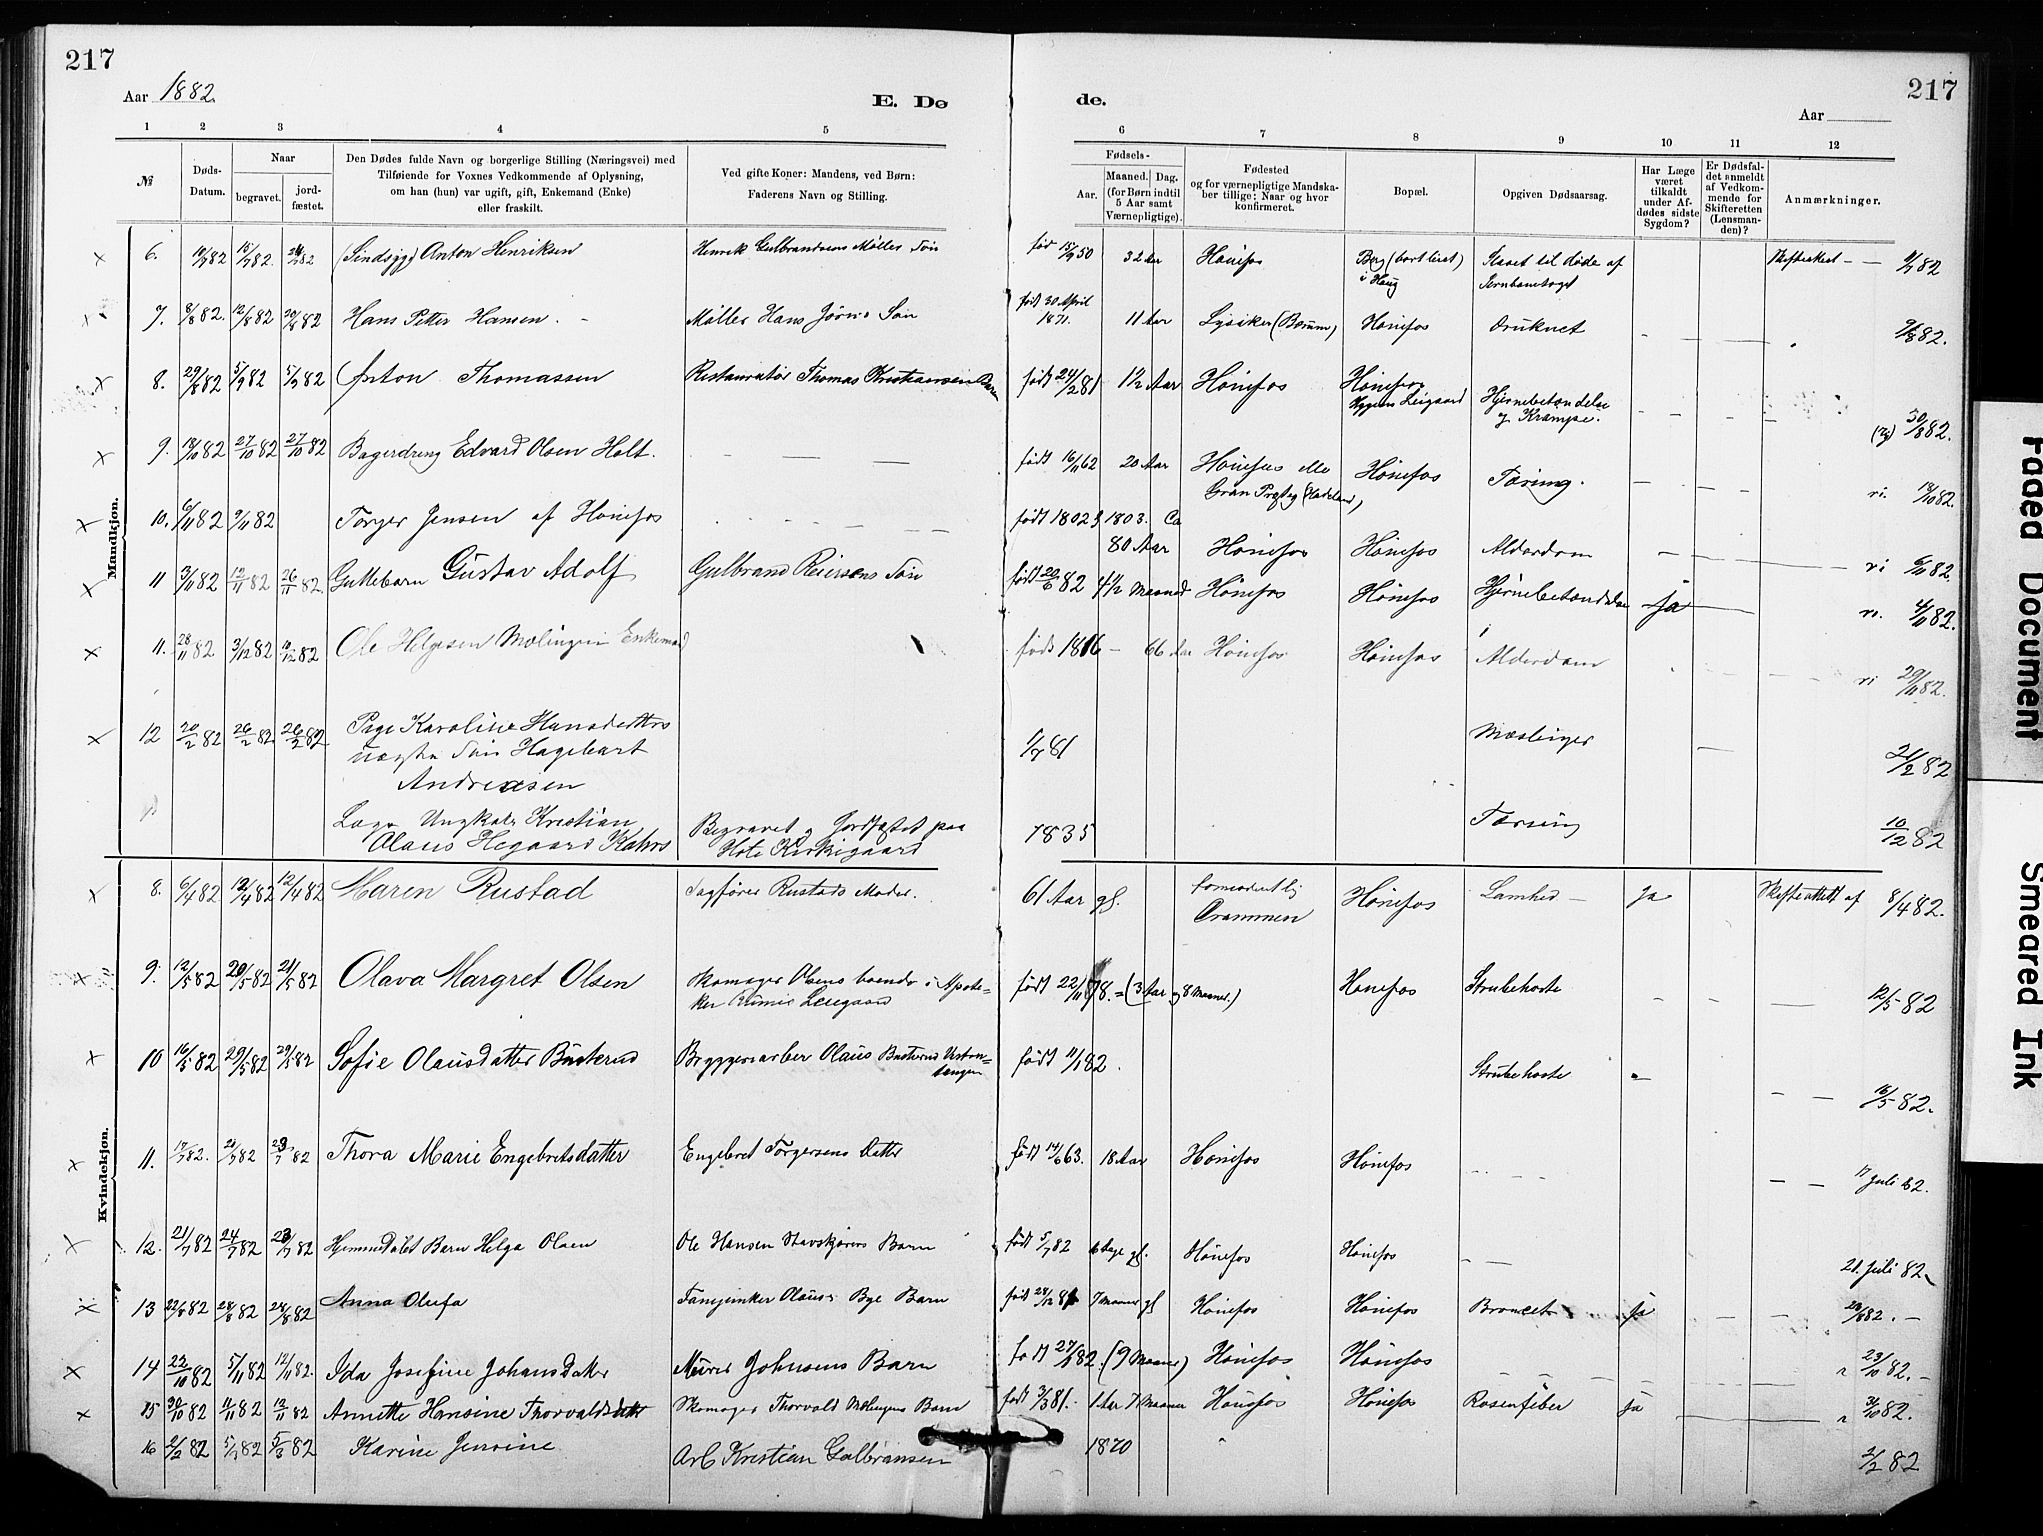 217
217
Aar 1882
E. Dø
de.
Aar
1 2 3 4 5 6 7 8 9 10 11 12
№
Døds-Datum.
Naar
begravet.
jord-fæstet.
Den Dødes fulde Navn og borgerlige Stilling (Næringsvei) med
Tilføiende for Voxnes Vedkommende af Oplysning,
om han (hun) var ugift, gift, Enkemand (Enke)
eller fraskilt.
Ved gifte Koner: Mandens, ved Børn:
Faderens Navn og Stilling.
Fødsels-
Aar.
Maaned. Dag.
(for Børn indtil
5 Aar samt
Værnepligtige).
Fødested
og for værnepligtige Mandska-
ber tillige: Naar og hvor
konfirmeret.
Bopæl.
Opgiven Dødsaarsag.
Har Læge
været
tilkaldt
under Af-
dødes sidste
Sygdom?
Er Dødsfal-
det anmeldt
af Vedkom-
mende for
Skifteretten
(Lensman-
den)?
Anmærkninger.
Mandkjøn.
6. 15/7 82. (Sindsyg) Anton Henriksen Henrik Gulbrandsens Møller Søn fød 15/9 50 32 Aar Hønefos Berg (bortleiet) i Haug Slaaet til døde af Jernbanetoget Skifteattest
7. 8/8 82. 12/8 82 20/8 82 Hans Petter Hansen. Møller Hans Jørns Søn født 30 April 1871. 11 Aar Lysaker (Bærum) Hønefos Druknet 9/8 82.
8. 29/8 82 5/9 82 5/9 82 Anton Thomassen Restauratør Thomas Kristiansen Barn født 24/2 81 1½ Aar Hønefos Hønefos Hjernebetændelse og Krampe. 30/8 82.
9. 18/10 82 27/10 82 27/10 82 Bagerdreng Edvard Olsen Holt. født 16/11 62 20 Aar Hønefos elle Gran Prgjeld (Hadeland) Hønefos Tæring. 18/10 82.
10. 6/11 82 9/11 82 Torger Jensen af Hønefos født 1802 1803. Ca 80 Aar Hønefos Hønefos Alderdom 6/11 82.
11 3/11 82 12/11 82 26/11 82. Guttebarn Gustav Adolf Gulbrand Reiersens Søn født 20/6 82 4½ Maaned Hønefos Hønefos Hjernebetændelse Ja 4/11 82.
11. 28/11 82 3/12 82 10/12 82 Ole Helgesen Mælingen Enkemand født 1816 66 Aar Hønefos Hønefos Alderdom 29/11 82.
12 20/2 82 26/2 82 26/2 82 Pige Karoline Hansdatters uægte Søn Hagebart Andreasen 1/7 81 Mæslinger 21/2 82
Ungkarl Kristian Olaus Hegaard Kahrs Begravet og Jordfæstet paa Hole Kirkegaard 1835 Tæring 10/12 82
Kvindekjøn.
8. 6/4 82 12/4 82 12/4 82 Maren Rustad Sagfører Rustads Moder. 61 Aar gl. Drammen Hønefos Lamhed Ja Skifteattest af 8/4 82.
9. 12/5 82 20/5 82 21/5 82 Olava Margret Olsen Skomager Olsens boende i Apothe-
ker Leiegaard født 22/11 78. = (3 Aar og 8 Maaner.) Hønefos Strubehoste 12/5 82
10 16/5 82 29/5 82 29/5 82 Sofie Olausdatter Busterud Bryggeriarber Olaus Busterud født 11/1 82. Strubehoste 16/5 82.
11. 17/7 82. 21/7 82 23/7 82 Thora Marie Engebretsdatter Engebret Torgersens Datter født 14/6 63. 18 Aar Hønefos Hønefos 17 Juli 82.
12. 21/7 82 24/7 82 23/7 82 Hjemmedøbt Barn Helga Olsen Ole Hansen Stavskjærers Barn født 5/7 82 Dage gl. Hønefos Hønefos 21. Juli 82.
13 22/8 82 28/8 82 28/8 82 Anna Olufa Olaus Bye Barn født 28/12 81 7 Maaner gl Hønefos Hønefos Ja 23/8 82.
14 22/10 82 5/11 82 12/11 82. Ida Josefine Johansdatter Murer Johnsens Barn født 27/1 82. (9 Maaner) Hønefos Hønefos 23/10 82.
15 30/10 82 11/11 82 12/11 82 Annette Hansine Thorvaldsdatter Skomager Thorvald Mælingens Barn født 3/3 81. 1 Aar 7 Maaner Hønefos Hønefos Rosenfeber Ja 31/10 82.
16 2/2 82 5/3 82 Karine Jensine Arb Kristian Gulbransen 1820 2/2 82
Faded Document
Smeared Ink